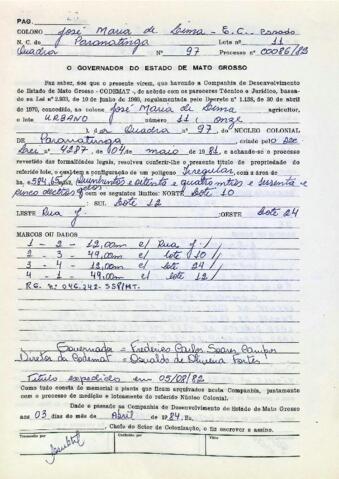 PAG.
COLONO José Maria de Lima - E.C. casado
N. C. de Paranatinga Lote n.º 11
Quadra N.º 97 Processo n.º 00086/82
O GOVERNADOR DO ESTADO DE MATO GROSSO
Faz saber, aos que o presente virem, que havendo a Companhia de Desenvolvimento
do Estado de Mato Grosso - CODEMAT -, de acordo com os pareceres Técnico e Jurídico, basea-
do na Lei n.º 2.933, de 10 de junho de 1969, regulamentada pelo Decreto n.º 1.138, de 30 de abril
de 1970, concedido, ao colono José Maria de Lima agricultor,
o lote URBANO número 11 (onze
) da Quadra nº 97, do NÚCLEO COLONIAL
DE Paranatinga, criado pelo
Lei nº 4287 de 04 de maio de 1981, e achando-se o processo
revestido das formalidades legais, resolveu conferir-lhe o presente título de propriedade
referido lote, o qual tem a configuração de um polígono Irregular, com a área de
584,65 Quinhentos e oitenta e quatro mtros e sessenta e
cinco com os seguintes limites: NORTE Lote 10
SUL Lote 12
LESTE Rua J. OESTE Lote 24
MARCOS OU DADOS
1 - 2 - 12,00m c/ Rua J. /
2 - 3 - 49,00m c/ lote 10 /
3 - 4 - 12,00m c/ lote 24 /
4 - 1 - 49,00m c/ lote 12 /
RG. nº 046.242-SSP/MT.
Governador = Frederico Carlos Soares Campos
Diretor da Codemat = Oswaldo de Oliveira Fortes
Título expedido em 05/08/82
Como tudo consta do memorial e planta que ficam arquivados nesta Companhia, juntamente
com o processo de medição e loteamento do referido Núcleo Colonial.
Dado e passado na Companhia de Desenvolvimento do Estado de Mato Grosso
aos 03 dias do mês de Abril de 1984. Eu,
, Chefe do Setor de Colonização, o fiz escrever e assino.
Transcrito por
Conferido por
Visto